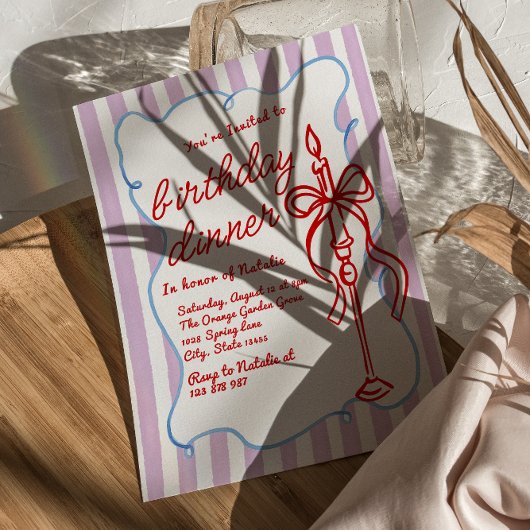 You're Invited to
birthday
dinner
In honor of Natalie
Saturday, August 12 at 8pm
The Orange Garden Grove
1028 Spring lane
City, State 13455
Rsvp to Natalie at
123 878 987